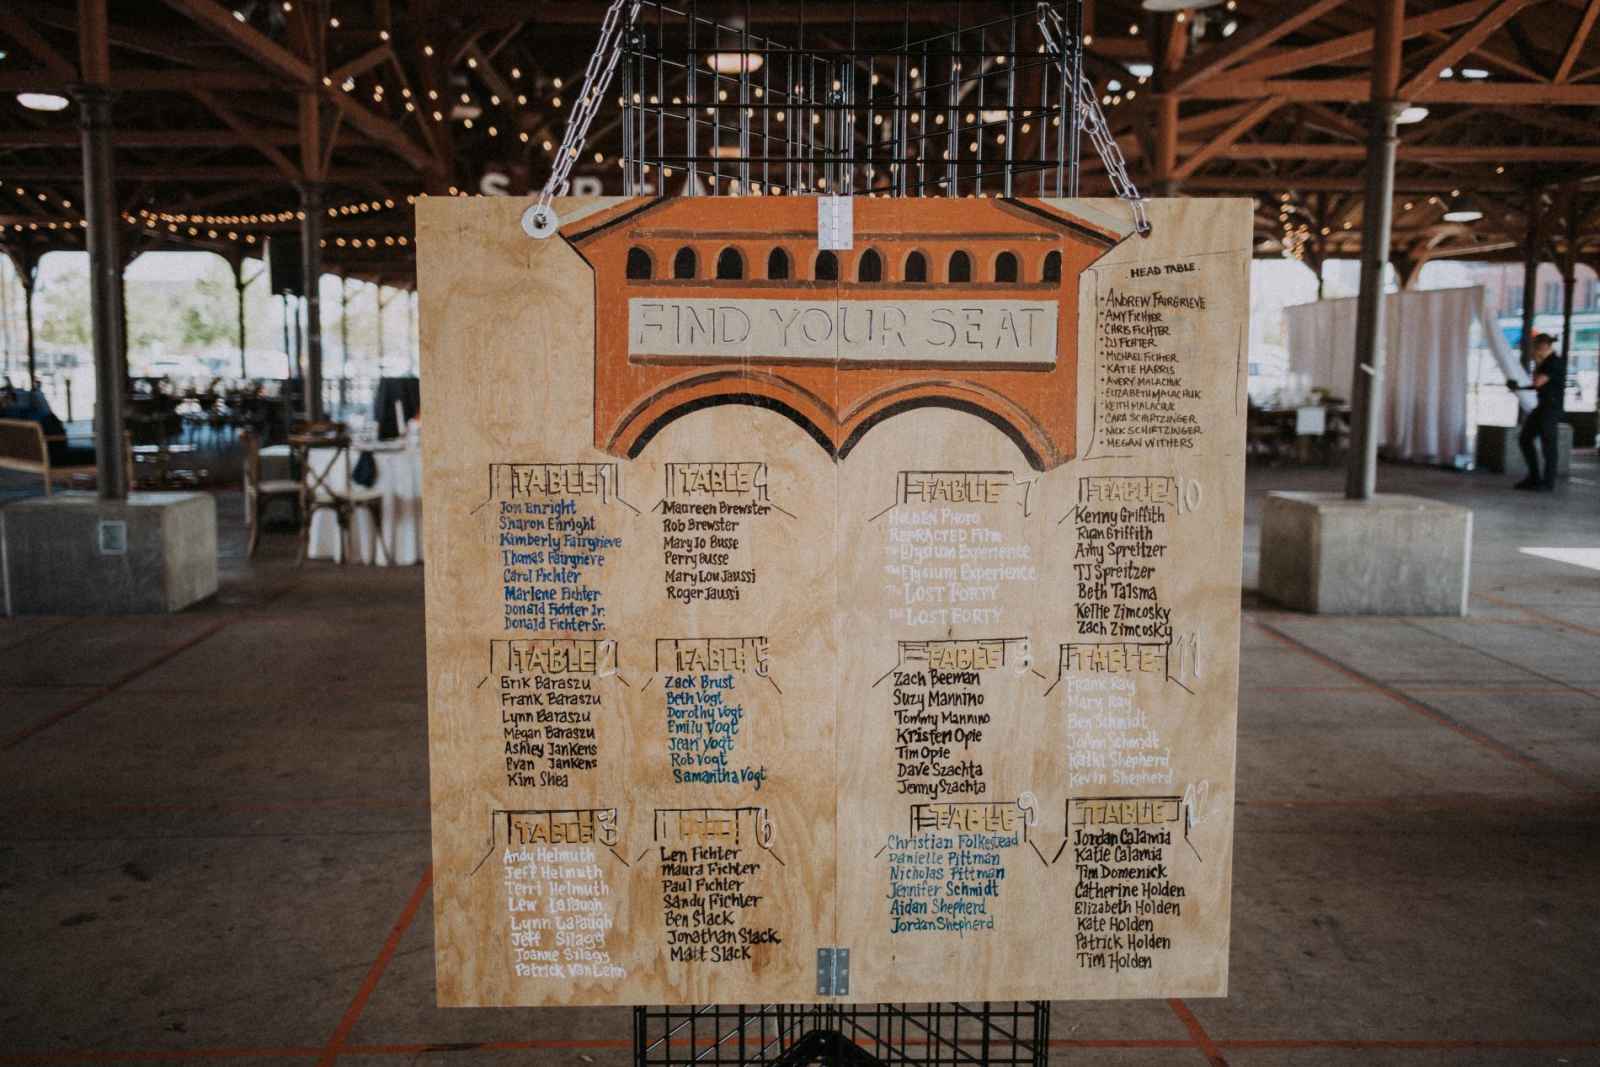 FIND YOUR SEAT
· HEAD TABLE ·
• ANDREW FAIRGRIEVE
• AMY FICHTER
• CHRIS FICHTER
• DJ FICHTER
• MICHAEL FICHTER
• KATIE HARRIS
• AVERY MALACHUK
• ELIZABETH MALACHUK
• KEITH MALACHUK
• CARA SCHIRTZINGER
• NICK SCHIRTZINGER
• MEGAN WITHERS
TABLE 1
Jon Enright
Sharon Enright
Kimberly Fairgrieve
Thomas Fairgrieve
Carol Fichter
Marlene Fichter
Donald Fichter Jr.
Donald Fichter Sr.
TABLE 2
Erik Baraszu
Frank Baraszu
Lynn Baraszu
Megan Baraszu
Ashley Jankens
Evan Jankens
Kim Shea
TABLE 3
Andy Helmuth
Jeff Helmuth
Terri Helmuth
Lew LaPaugh
Lynn LaPaugh
Jeff Silagy
Joanne Silagy
Patrick VanLehn
TABLE 4
Maureen Brewster
Rob Brewster
Mary Jo Busse
Perry Busse
Mary Lou Jaussi
Roger Jaussi
TABLE 5
Zack Brust
Beth Vogt
Dorothy Vogt
Emily Vogt
Jean Vogt
Rob Vogt
Samantha Vogt
TABLE 6
Len Fichter
Maura Fichter
Paul Fichter
Sandy Fichter
Ben Slack
Jonathan Slack
Matt Slack
TABLE 7
HOLDEN PHOTO
REFRACTED Film
The Elysium Experience
The Elysium Experience
The LOST FORTY
The LOST FORTY
TABLE 8
Zach Beeman
Suzy Mannino
Tommy Mannino
Kristen Opie
Tim Opie
Dave Szachta
Jenny Szachta
TABLE 9
Christian Folkestead
Danielle Pittman
Nicholas Pittman
Jennifer Schmidt
Aidan Shepherd
Jordan Shepherd
TABLE 10
Kenny Griffith
Ryan Griffith
Amy Spreitzer
TJ Spreitzer
Beth Talsma
Kellie Zimcosky
Zach Zimcosky
TABLE 11
Frank Ray
Mary Ray
Ben Schmidt
JoAnn Schmidt
Kathi Shepherd
Kevin Shepherd
TABLE 12
Jordan Calamia
Katie Calamia
Tim Domenick
Catherine Holden
Elizabeth Holden
Kate Holden
Patrick Holden
Tim Holden